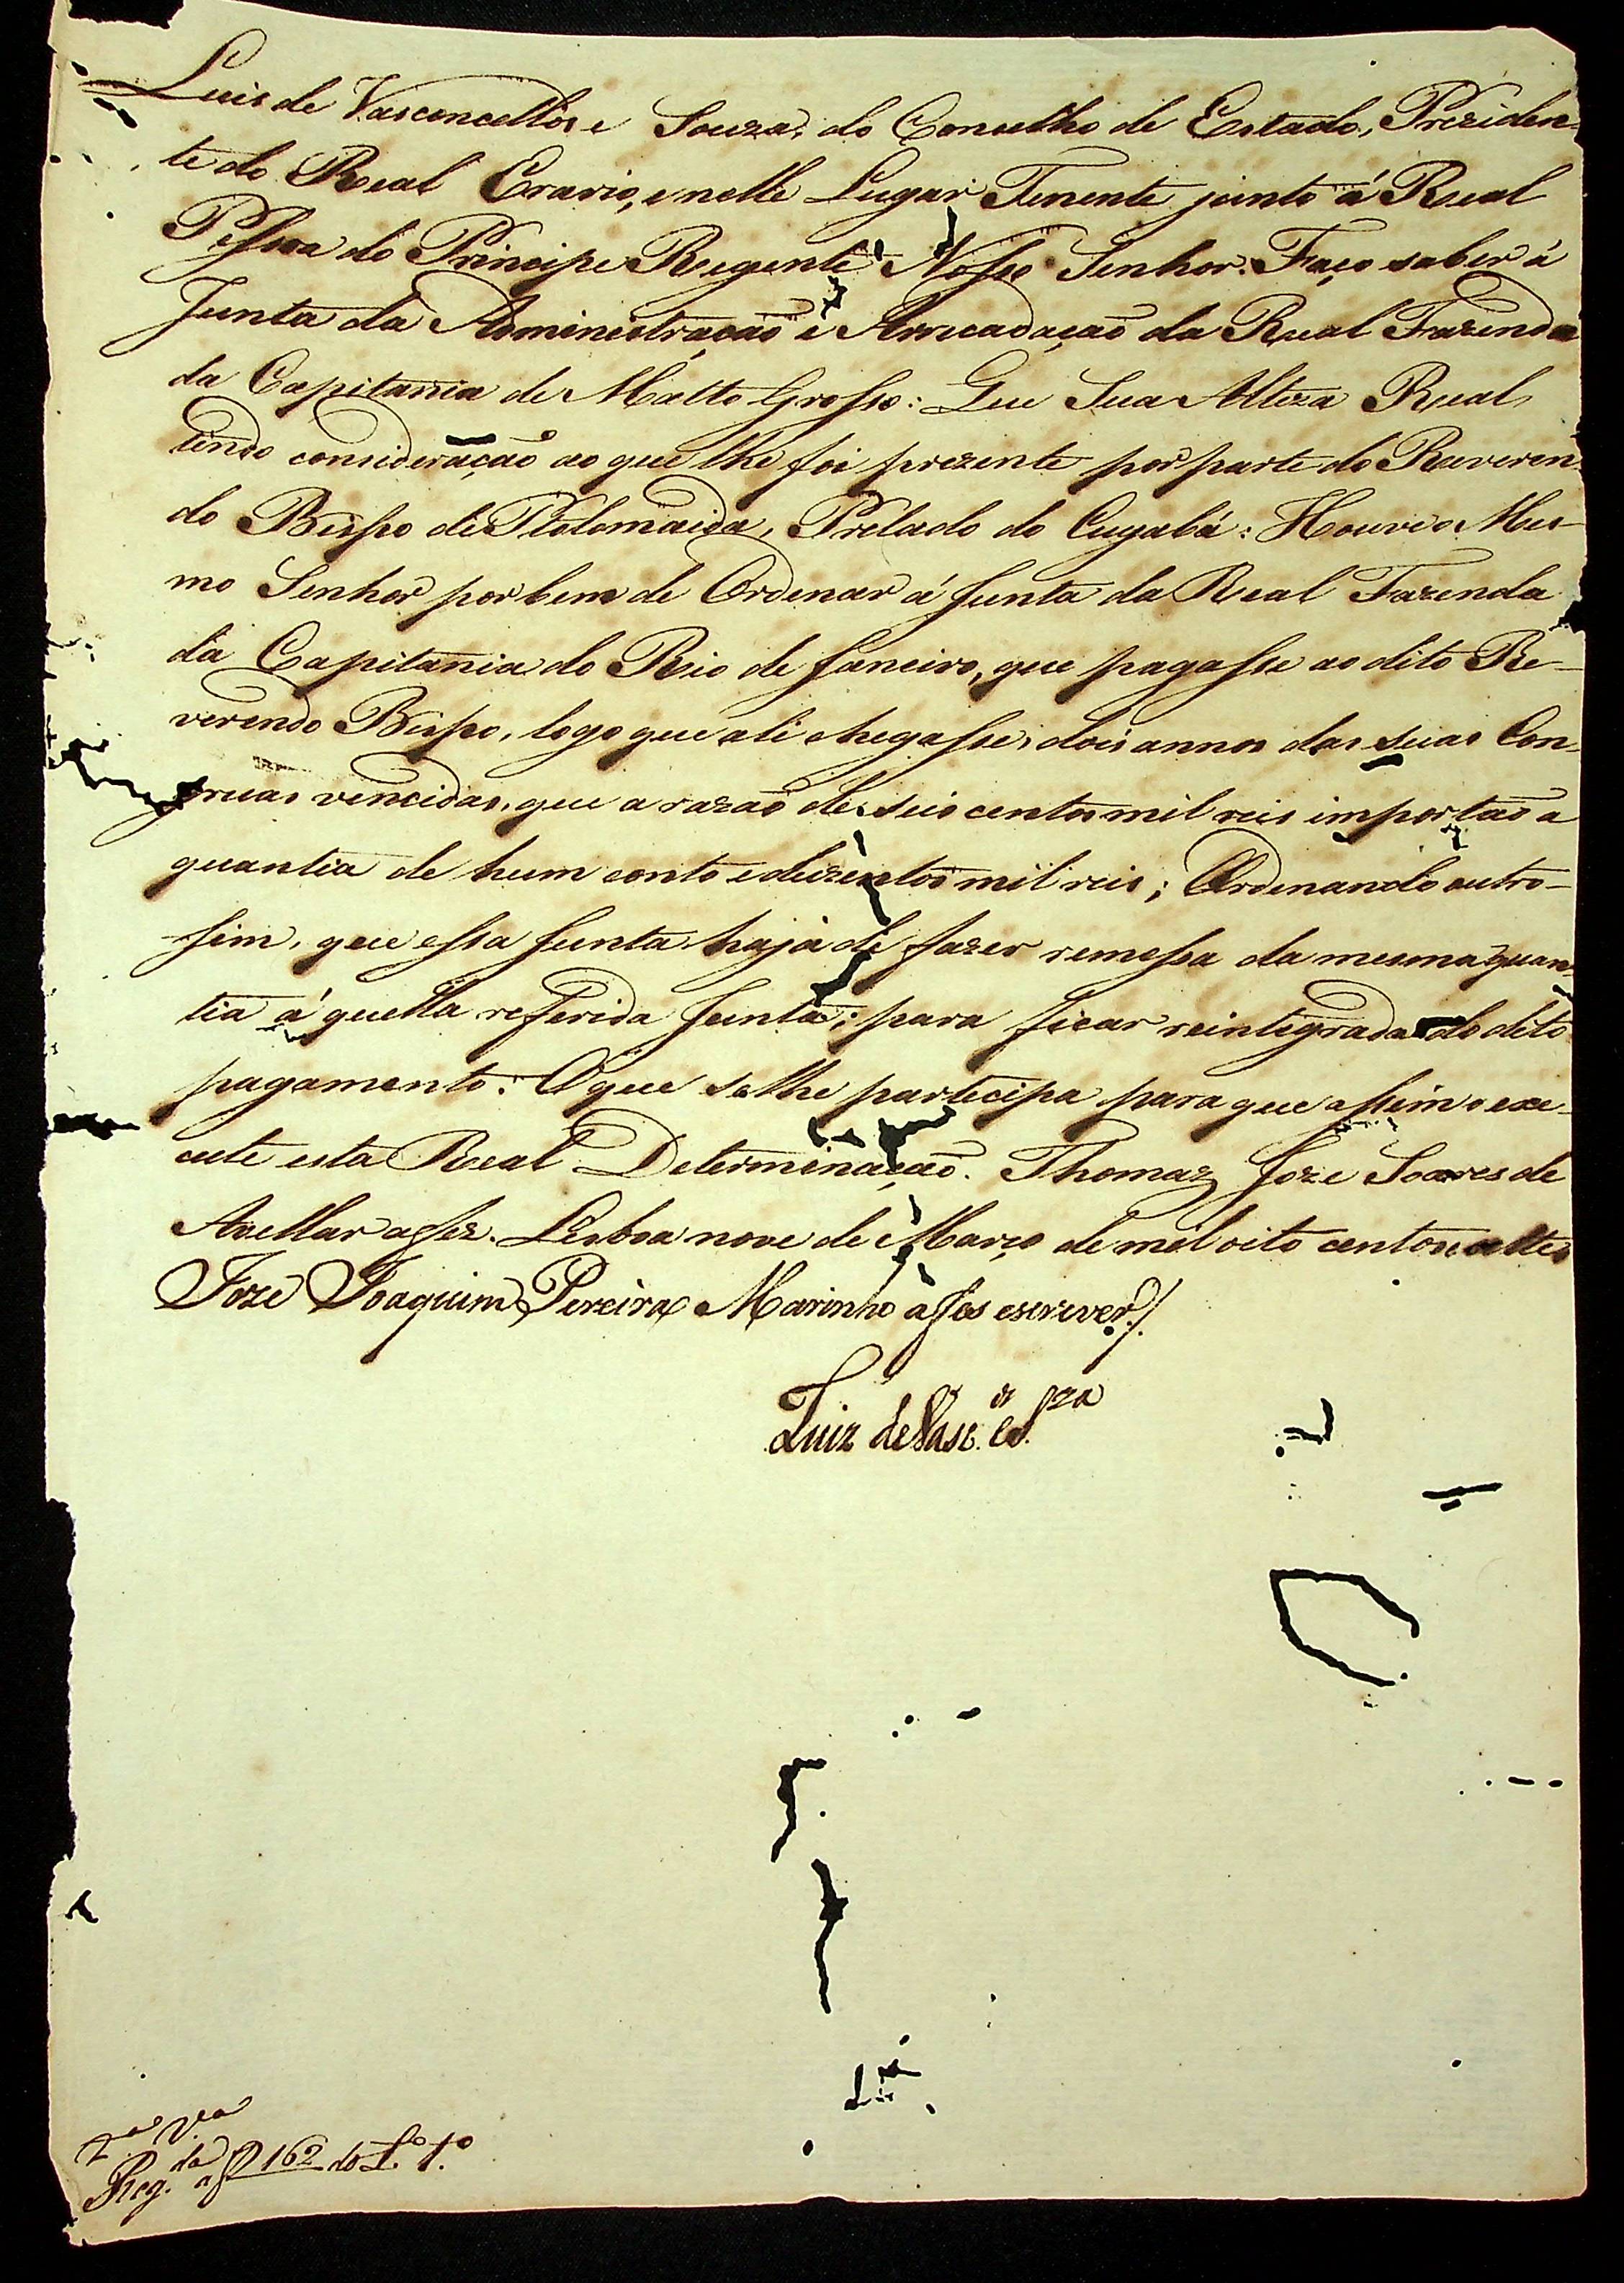 Luis de Vasconcellos e Souza, do Conselho de Estado, Preziden-
te do Real Erario, e nelle Lugar Tenente junto á Real
Pessoa do Principe Regente Nosso Senhor. Faço saber á
Junta da Administração e Arrecadação da Real Fazenda
da Capitania de Matto Grosso: Que Sua Alteza Real,
tendo consideração ao que lhe foi prezente por parte do Reveren-
do Bispo de Ptolomaida, Prelado do Cuyabá: Houve o Mes-
mo Senhor por bem de Ordenar á Junta da Real Fazenda
da Capitania do Rio de Janeiro, que pagasse ao dito Re-
verendo Bispo, logo que ali chegasse, dois annos das suas Con-
gruas vencidas, que a razaõ de seis centos mil reis importaõ a
quantia de hum conto e duzentos mil reis; Ordenando outro-
sim, que essa Junta haja de fazer remessa da mesma quan-
tia á quella referida Junta; para ficar reintegrada do dito
pagamento. O que se lhe participa para que assim o exe-
cute esta Real Determinação. Thomaz Joze Soares de
Avellar a fez. Lisboa nove de Março de mil oito centos e
Joze Joaquim Pereira Marinho a fes escrever./.
Luiz de Vasc.os e S.za
2.a Via
Reg.da a f 162 do L.o 1.o